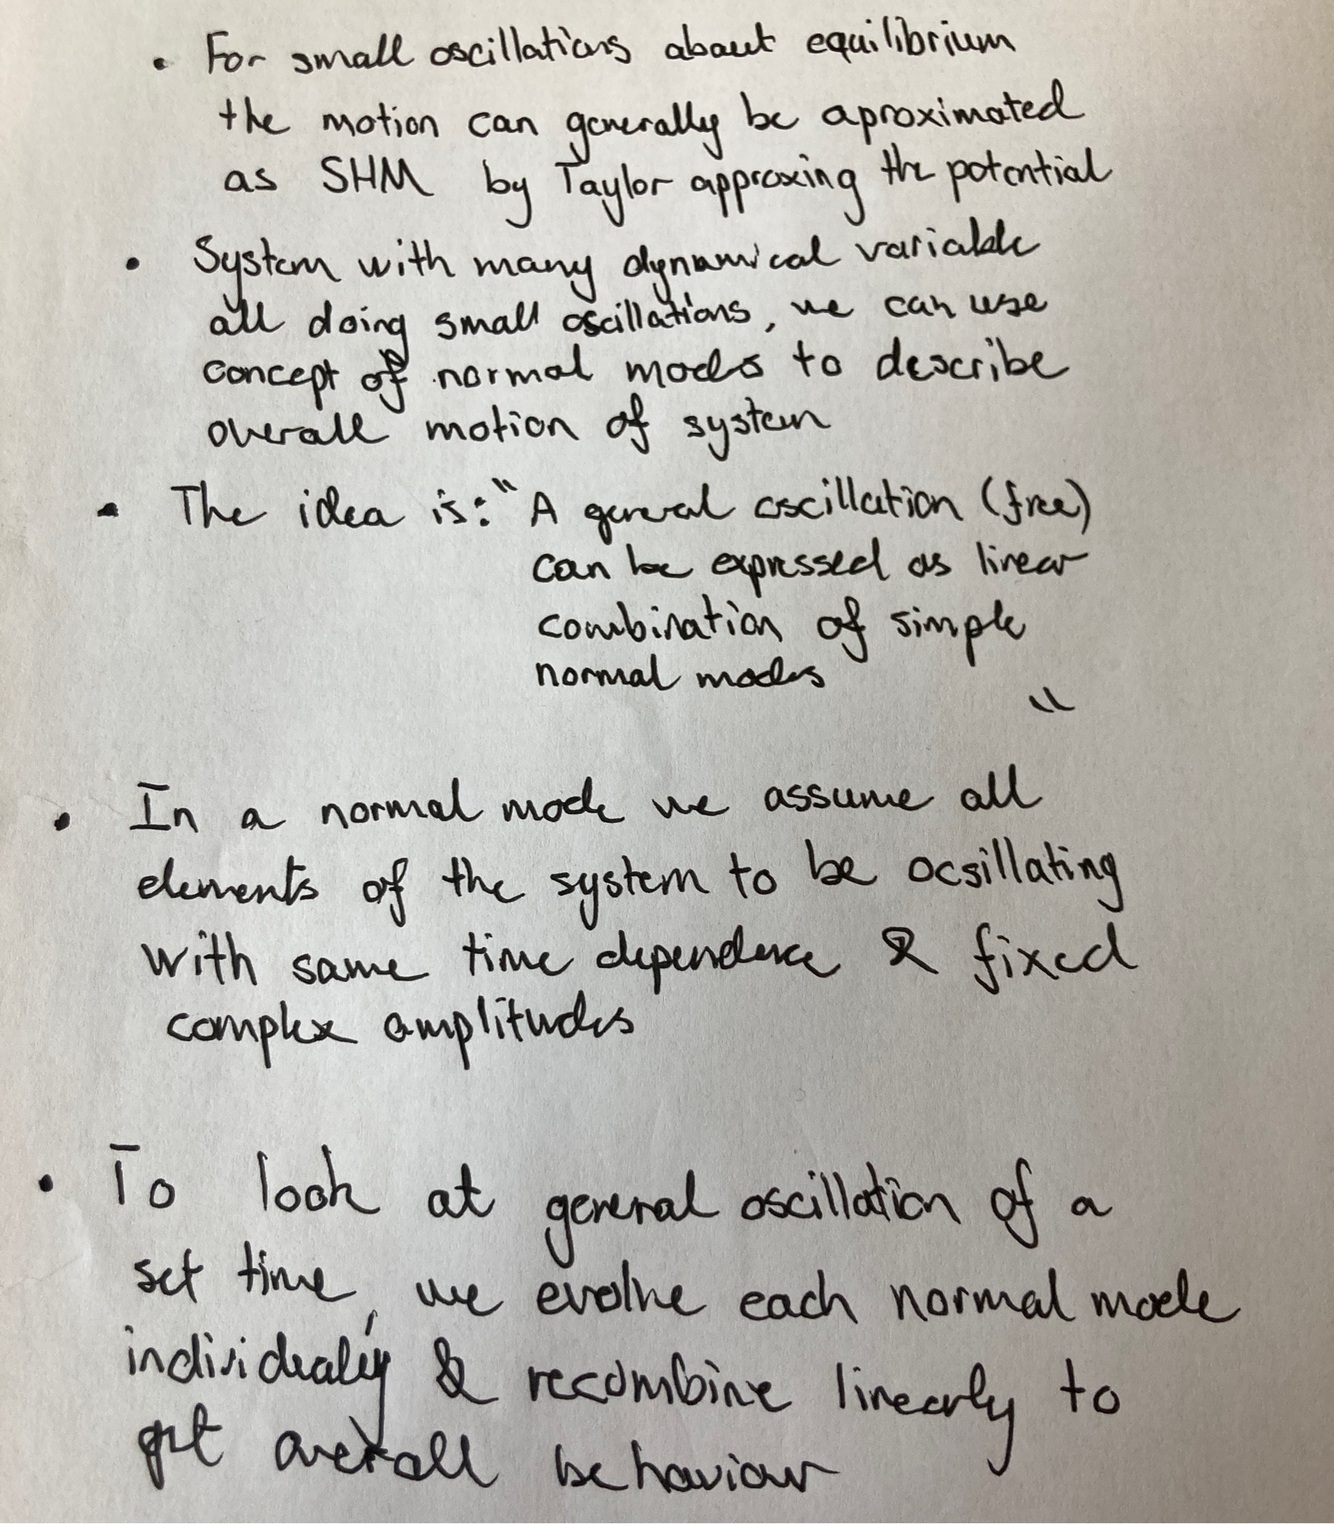 • For small oscillations about equilibrium
the motion can generally be aproximated
as SHM by Taylor approxing the potential
• System with many dynamical variable
all doing small oscillations, we can use
concept of normal modes to describe
overall motion of system
• The idea is: "A general oscillation (free)
can be expressed as linear
combination of simple
normal modes
"
• In a normal mode we assume all
elements of the system to be ocsillating
with same time dependence & fixed
complex amplitudes
• To look at general oscillation of a
set time, we evolve each normal mode
individually & recombine linearly to
get overall behaviour